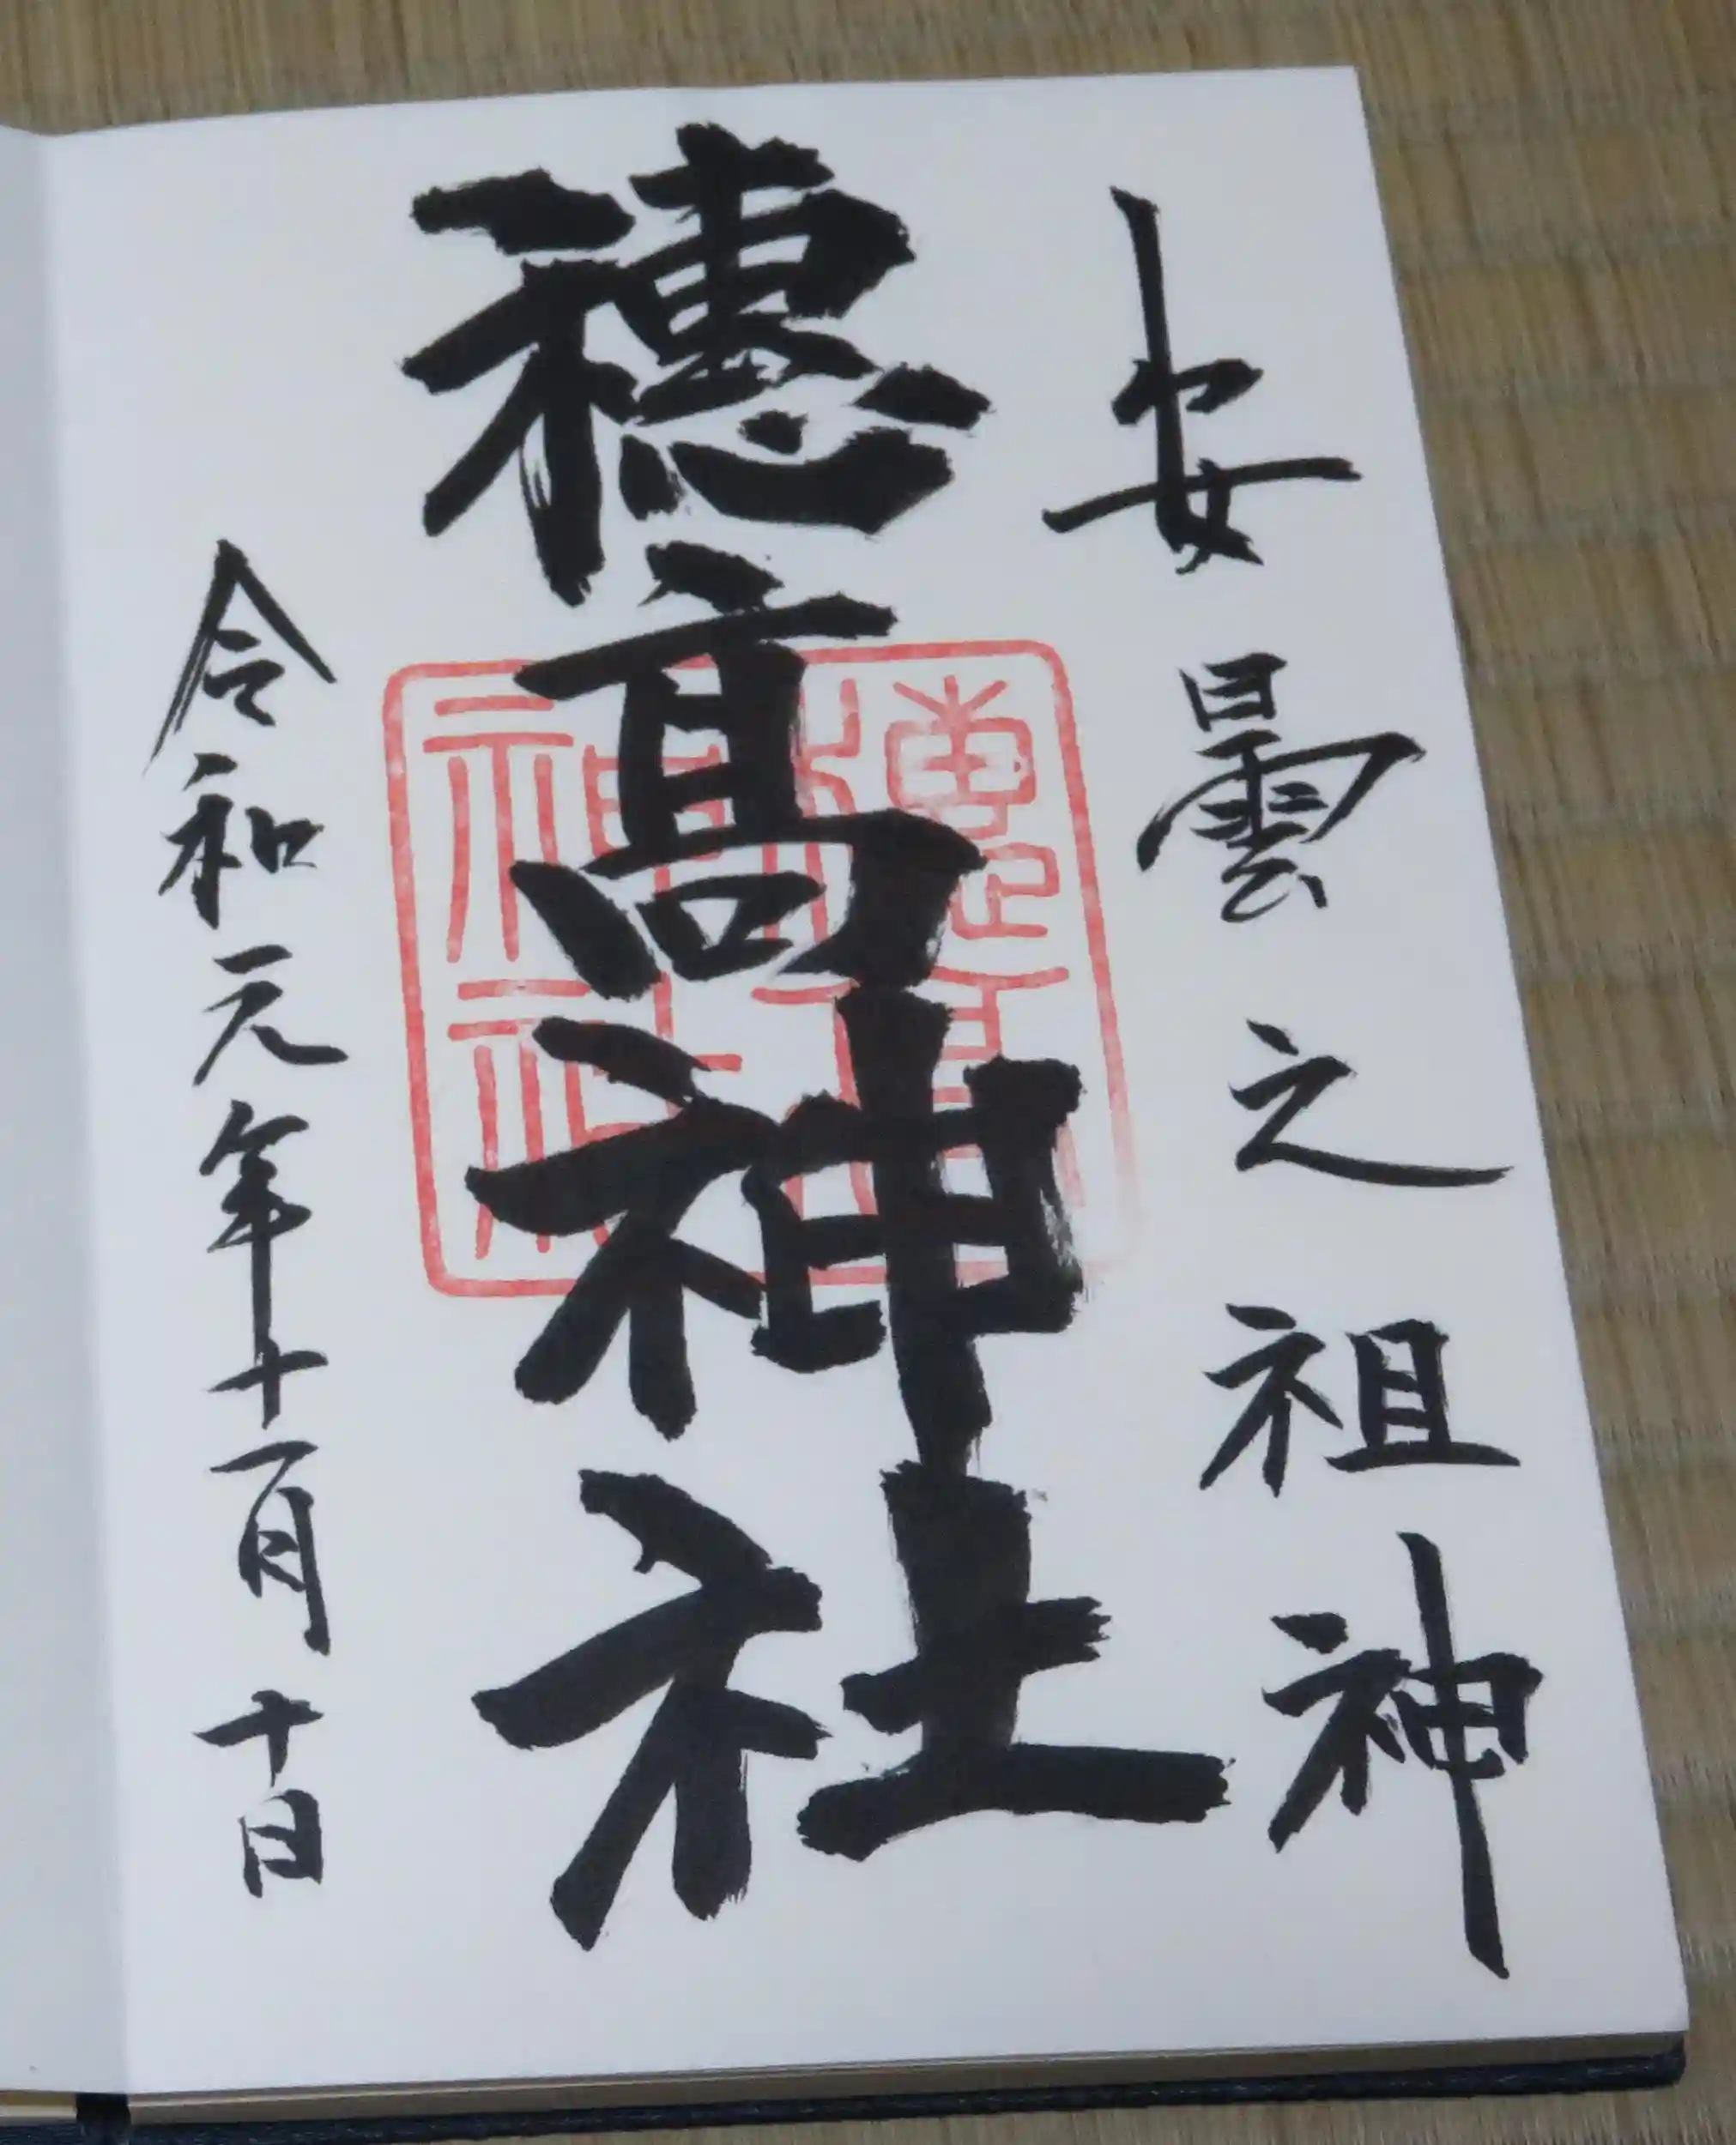 安曇之祖神
穗髙神社
穂高神社
令和元年十一月十日